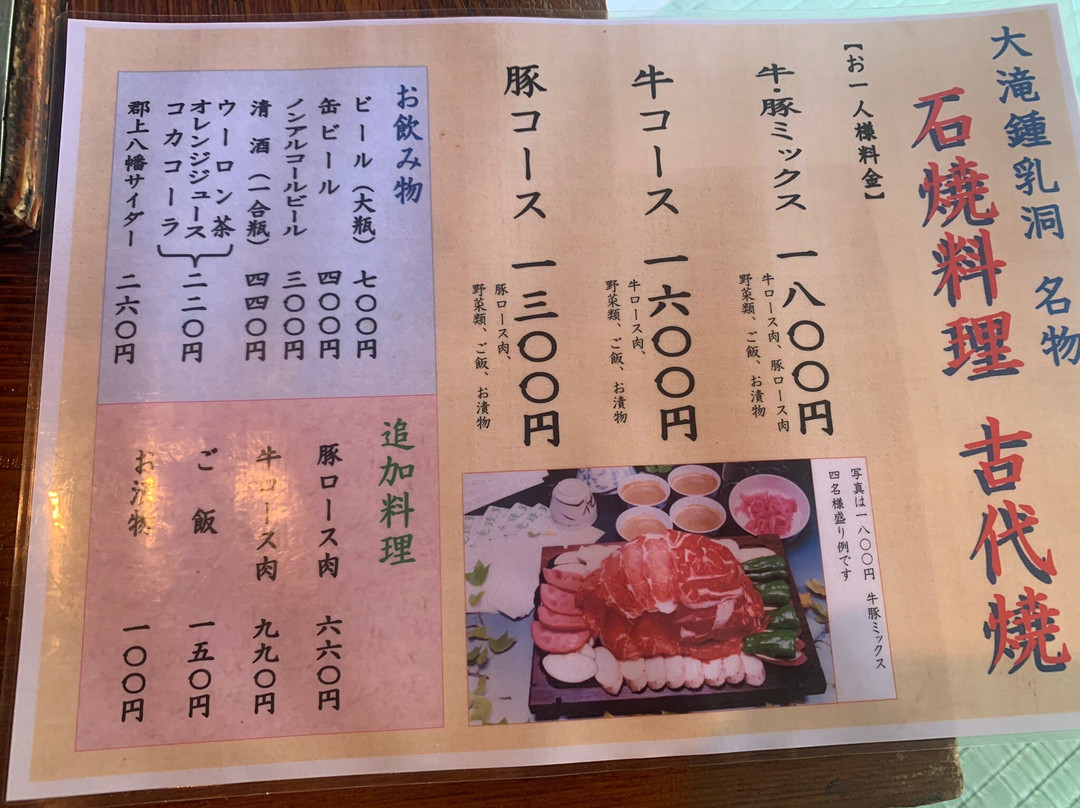 大滝鍾乳洞 名物
石焼料理 古代焼
【お一人様料金】
牛・豚ミックス 一八〇〇円
牛ロース肉、豚ロース肉
野菜類、ご飯、お漬物
牛コース 一六〇〇円
牛ロース肉、
野菜類、ご飯、お漬物
豚コース 一三〇〇円
豚ロース肉、
野菜類、ご飯、お漬物
写真は一八〇〇円 牛豚ミックス
四名様盛り例です
お飲み物
ビール(大瓶) 七〇〇円
缶ビール 四〇〇円
ノンアルコールビール 三〇〇円
清酒(一合瓶) 四四〇円
ウーロン茶
オレンジジュース 二二〇円
コカコーラ
郡上八幡サイダー 二六〇円
追加料理
豚ロース肉 六六〇円
牛ロース肉 九九〇円
ご飯 一五〇円
お漬物 一〇〇円